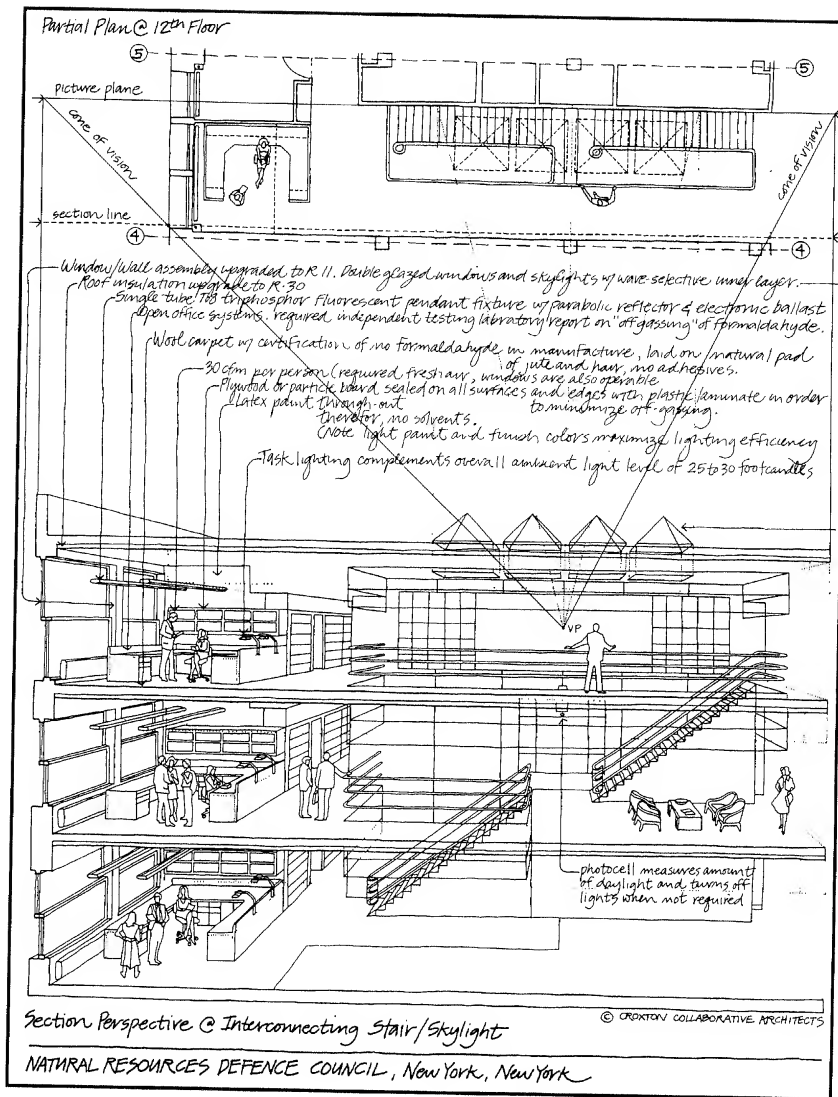 Partial Plan @ 12th Floor
5
5
picture plane
cone of vision
cone of vision
section line
4
4
Window/Wall assembly upgraded to R 11. Double glazed windows and skylights w/ wave-selective inner layer.
Roof insulation upgrade to R-30
Single tube T08 triphosphor fluorescent pendant fixture w/ parabolic reflector & electronic ballast
Open office systems. required independent testing labratory report on "off gassing" of formaldahyde.
Wool carpet w/ certification of no formaldahyde in manufacture, laid on natural pad
of jute and hair, no adhesives.
30 cfm per person (required fresh air, windows are also operable
Plywood or particle board sealed on all surfaces and edges with plastic laminate in order
to minimize off-gassing.
Latex paint through-out
therefor, no solvents.
(Note light paint and finish colors maximize lighting efficiency
Task lighting complements overall ambient light level of 25 to 30 footcandles
VP
photocell measures amount
of daylight and turns off
lights when not required
Section Perspective @ Interconnecting Stair/Skylight
© CROXTON COLLABORATIVE ARCHITECTS
NATURAL RESOURCES DEFENCE COUNCIL, New York, New York